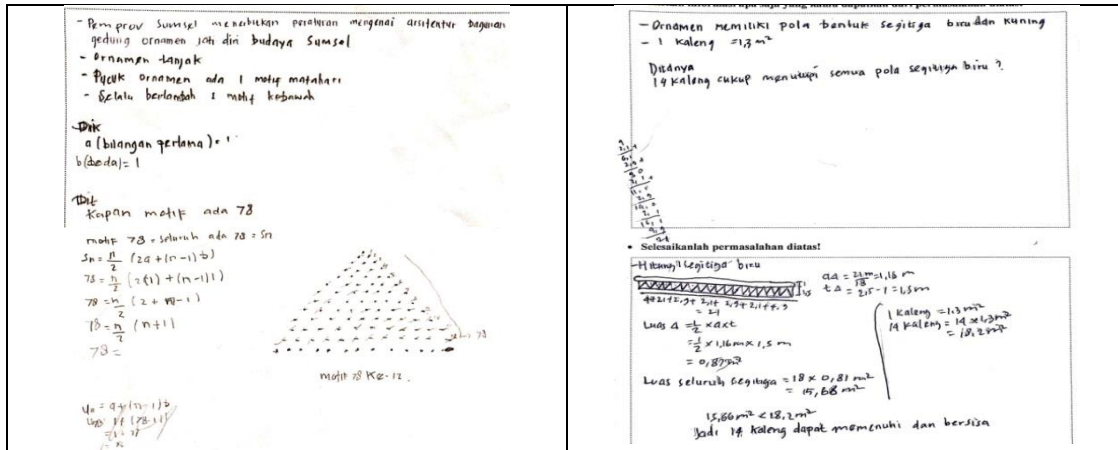 - Pemprov Sumsel menerbitkan peraturan mengenai arsitektur bagunan
gedung ornamen jati diri budaya Sumsel
- Ornamen tanjak
- Pucuk ornamen ada 1 motif matahari
- Selalu bertambah 1 motif kebawah
Dik
a (bilangan pertama) = 1
b (beda) = 1
Dit
Kapan motif ada 78
motif 78 = seluruh ada 78 = Sn
Sn = n/2 (2a + (n-1) b)
78 = n/2 (2(1) + (n-1) 1)
78 = n/2 (2 + n-1)
78 = n/2 (n+1)
78 =
78
motif 78 Ke-12.
Un = a + (n-1) b
- Ornamen memiliki pola bentuk segitiga biru dan kuning
- 1 kaleng = 1,3 m²
Ditanya
14 kaleng cukup menutupi semua pola segitiga biru ?
• Selesaikanlah permasalahan diatas!
- Hitung segitiga biru
aΔ = 21 m/18 = 1,16 m
tΔ = 2,5 - 1 = 1,5 m
= 21
Luas Δ = 1/2 × a × t
= 1/2 × 1,16 m × 1,5 m
= 0,87 m²
1 kaleng = 1,3 m²
14 kaleng = 14 × 1,3 m²
= 18,2 m²
Luas seluruh segitiga = 18 × 0,87 m²
= 15,68 m²
15,66 m² < 18,2 m²
Jadi 14 kaleng dapat memenuhi dan bersisa